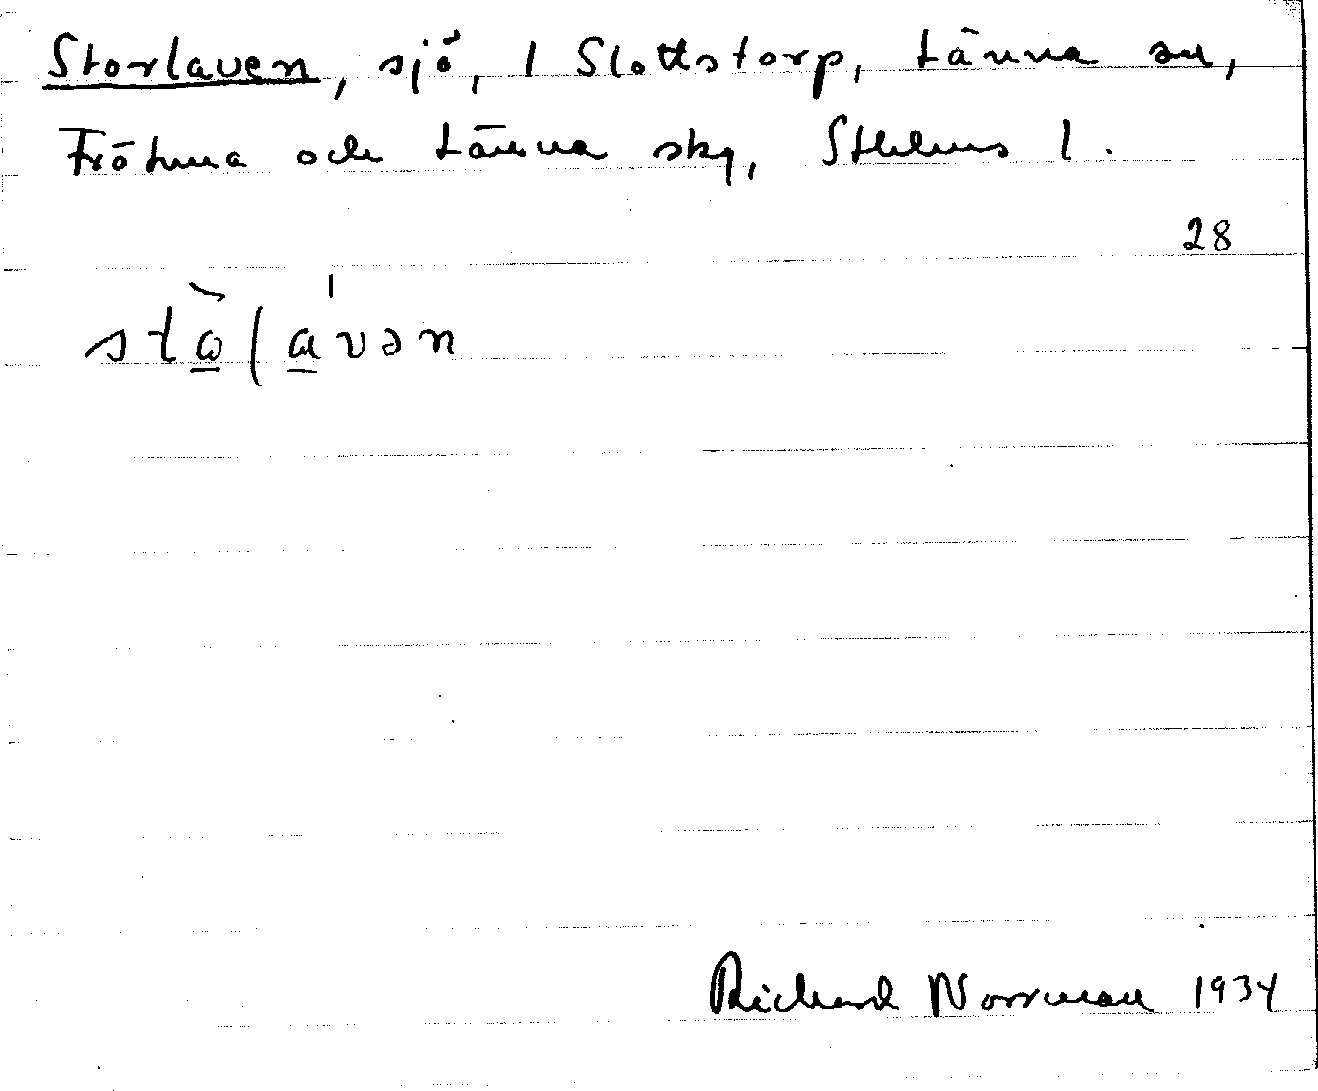 Storlaven, sjö, 1 Slottstorp, Länna sn,
Frötuna och Länna skg, Sthlms l.
28
stòlávən
Richard Norrman 1934